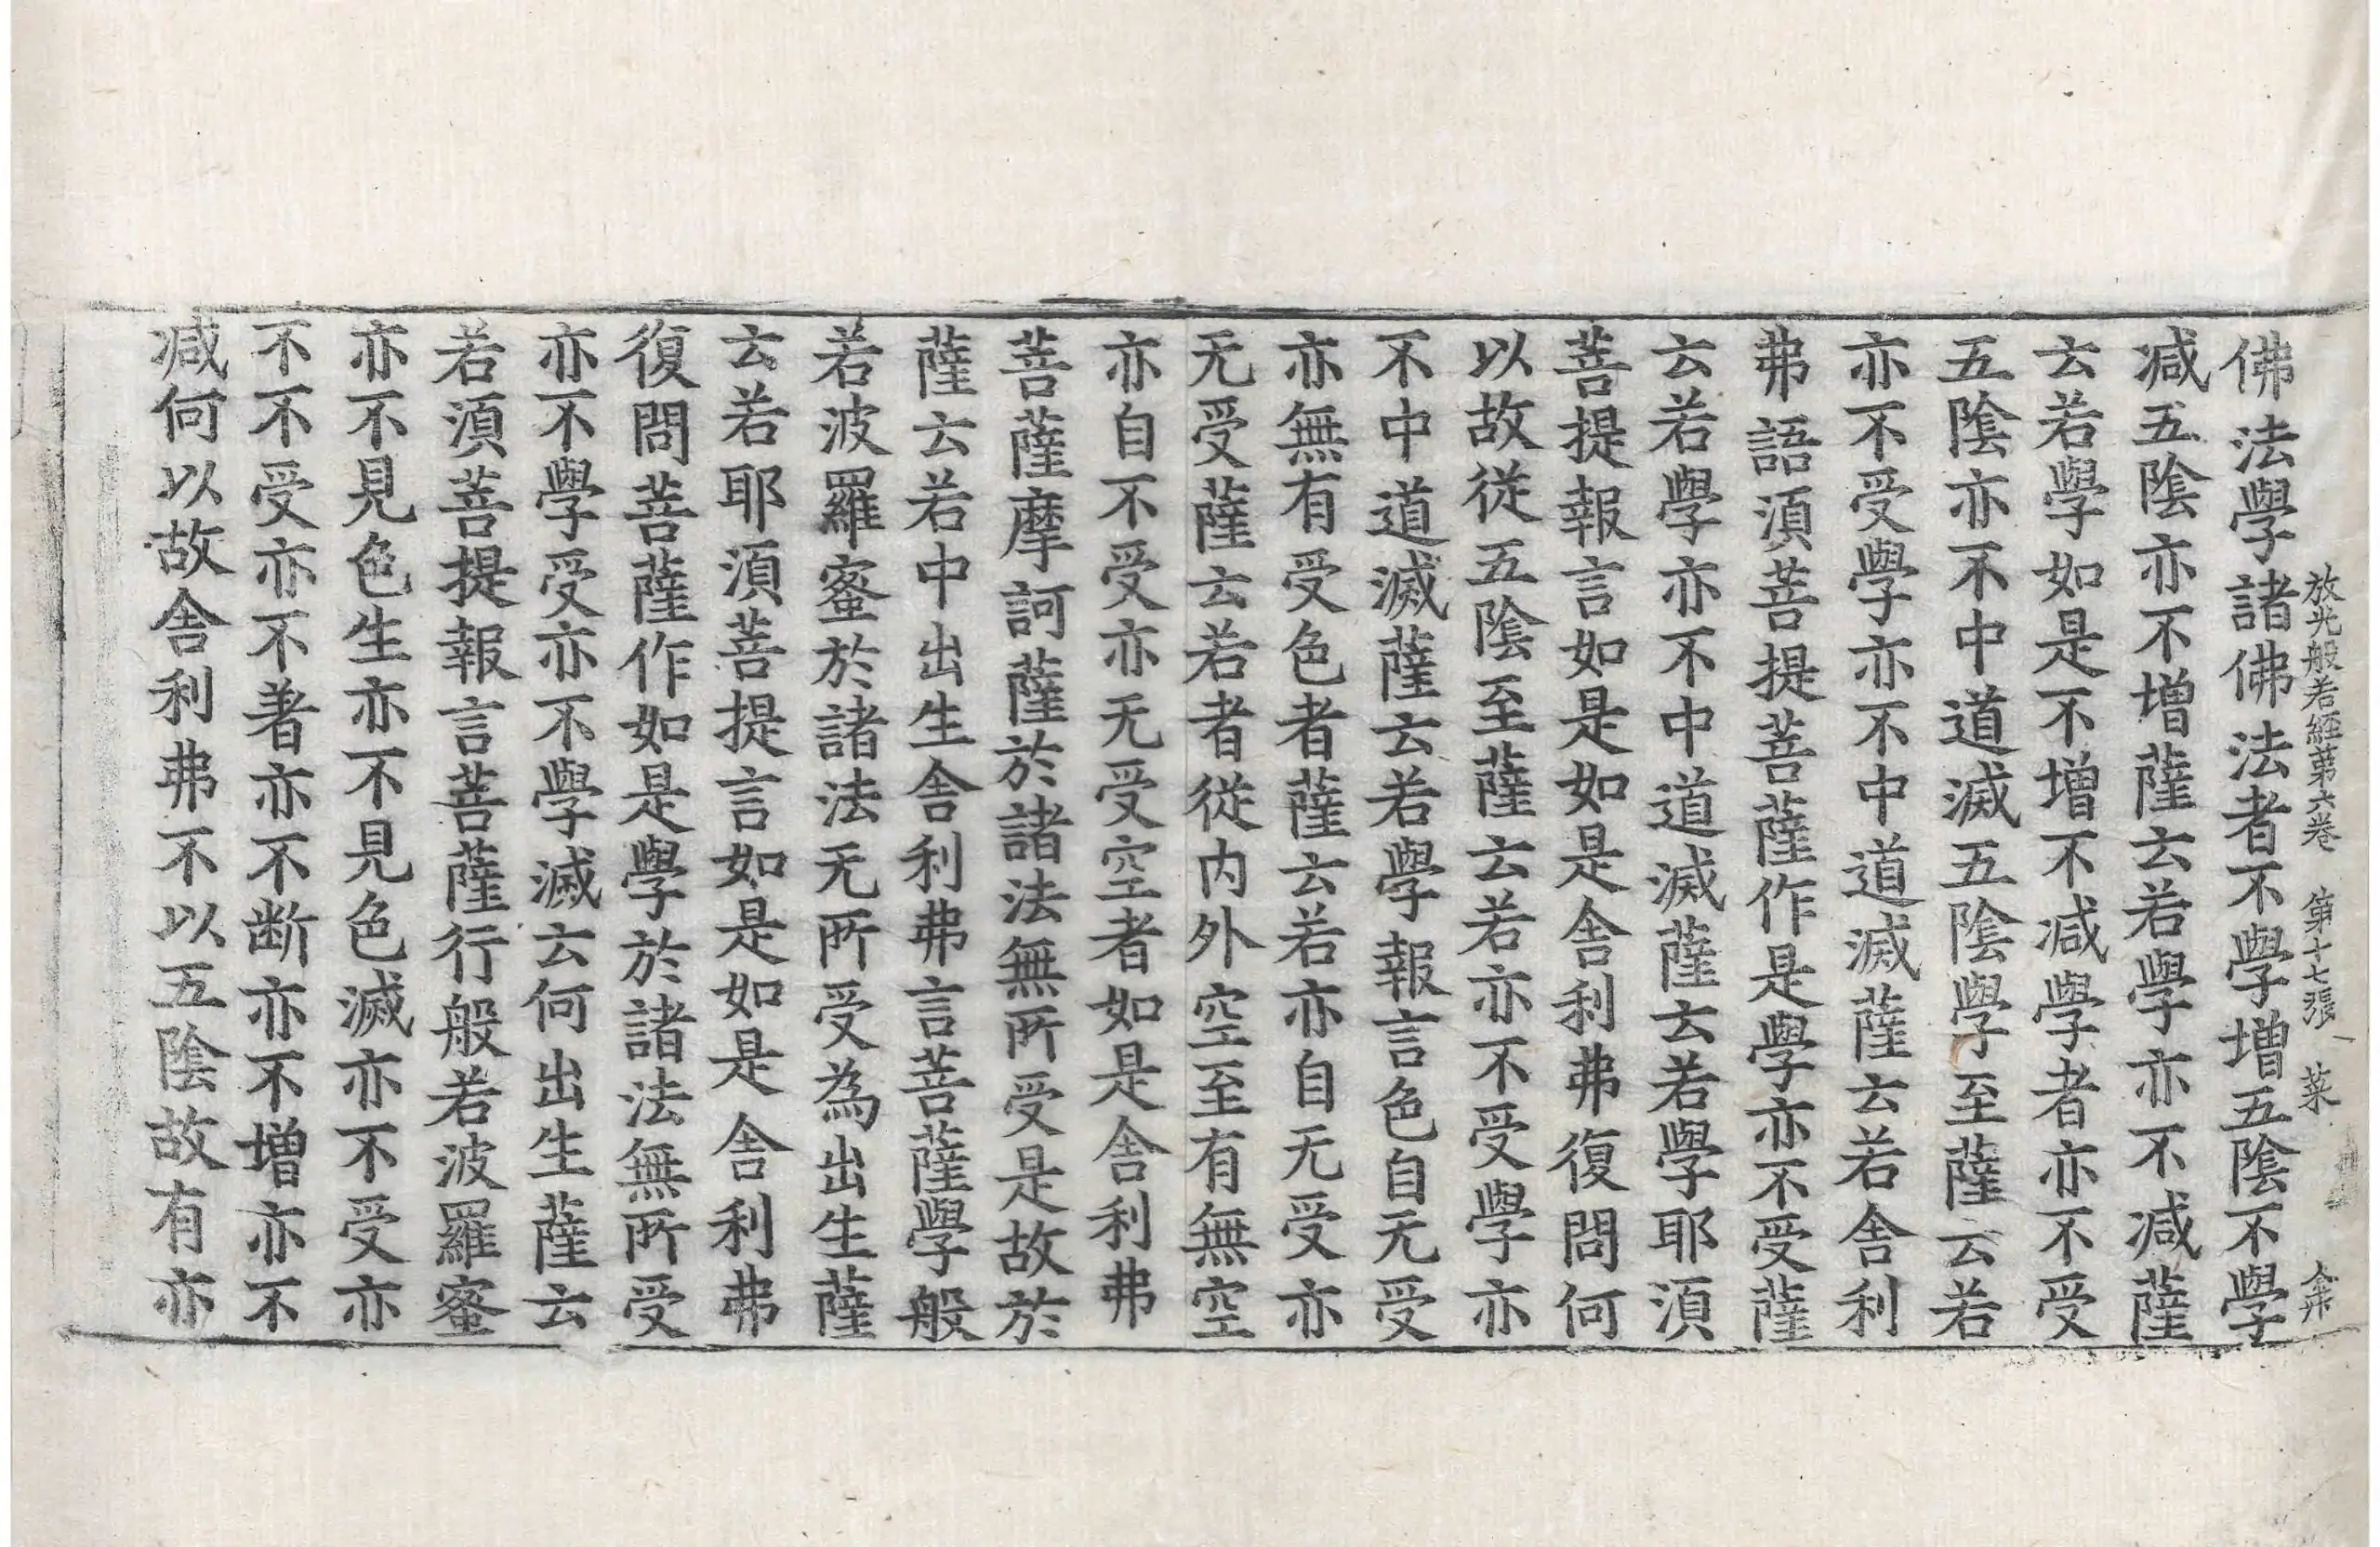 放光般若經第六卷 第十七張 菜
佛法學諸佛法者不學增五陰不學
减五陰亦不增薩云若學亦不减薩
云若學如是不增不减學者亦不受
五陰亦不中道滅五陰學至薩云若
亦不受學亦不中道滅薩云若舍利
弗語湏菩提菩薩作是學亦不受薩
云若學亦不中道滅薩云若學耶湏
菩提報言如是如是舍利弗復問何
以故從五陰至薩云若亦不受學亦
不中道滅薩云若學報言色自无受
亦無有受色者薩云若亦自无受亦
无受薩云若者從内外空至有無空
亦自不受亦无受空者如是舍利弗
菩薩摩訶薩於諸法無所受是故於
薩云若中出生舍利弗言菩薩學般
若波羅蜜於諸法无所受為出生薩
云若耶湏菩提言如是如是舍利弗
復問菩薩作如是學於諸法無所受
亦不學受亦不學滅云何出生薩云
若湏菩提報言菩薩行般若波羅蜜
亦不見色生亦不見色滅亦不受亦
不不受亦不著亦不断亦不增亦不
减何以故舍利弗不以五陰故有亦